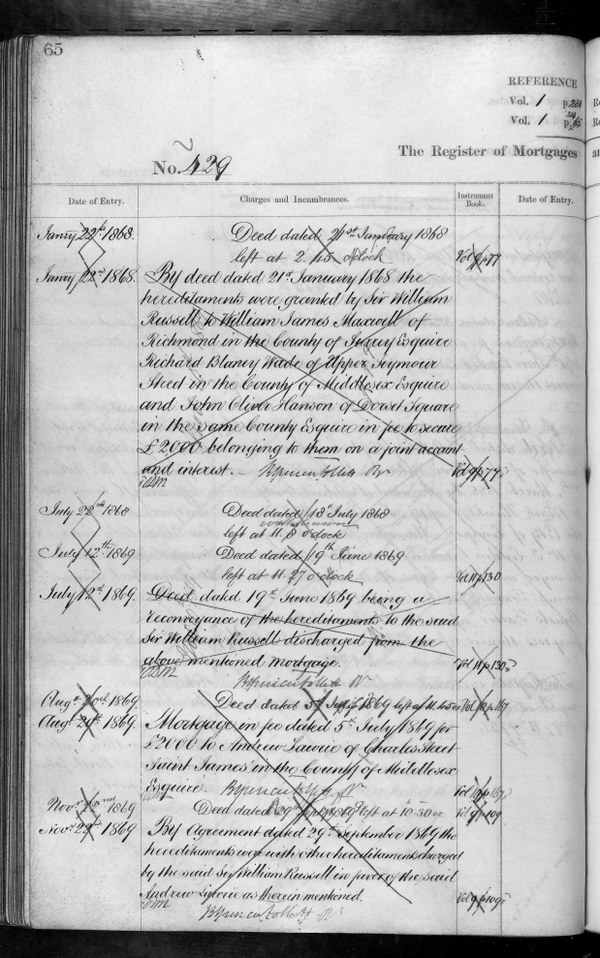 65
REFERENCE
Vol. 1 p.
Vol. 1 p.
The Register of Mortgages
No. 429
Date of Entry.
Charges and Incumbrances.
Instrument Book.
Date of Entry.
Janry 22nd 1868.
Deed dated 21st January 1868
left at 2.45 o'clock
Vol 9 p 77
Janry 22nd 1868.
By deed dated 21st January 1868 the
hereditaments were granted by Sir William
Russell to William James Maxwell of
Richmond in the County of Surrey Esquire
Richard Blaney Wade of Upper Seymour
Street in the County of Middlesex Esquire
and John Oliver Hanson of Dorset Square
in the same County Esquire in fee to secure
£2000 belonging to them on a joint account
and interest.
Vol 9 p 77
July 22nd 1868
Deed dated 18th July 1868
withdrawn
left at 11.8 o'clock
July 12th 1869
Deed dated 19th June 1869
left at 11.27 o'clock
Vol 11 p 130
July 12th 1869.
Deed dated 19th June 1869 being a
reconveyance of the hereditaments to the said
Sir William Russell discharged from the
above mentioned mortgage.
Vol 11 p 130
Augt 1869.
Deed dated 5th July 1869 left at 11.45
Vol p 167
Augt 24th 1869.
Mortgage in fee dated 5th July 1869 for
£2000 to Andrew Lawrie of Charles Street
Saint James' in the County of Middlesex
Esquire.
Vol p 167
Novr 22nd 1869
Deed dated 29th Septr 1869 left at 10.50
Vol 9 p 109
Novr 22nd 1869
By Agreement dated 29th September 1869 the
hereditaments were with other hereditaments charged
by the said Sir William Russell in favor of the said
Andrew Lawrie as therein mentioned.
Vol 9 p 109